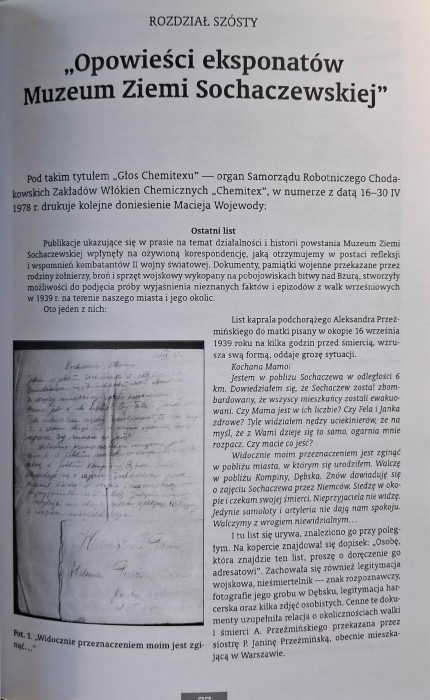 ROZDZIAŁ SZÓSTY
„Opowieści eksponatów
Muzeum Ziemi Sochaczewskiej”
Pod takim tytułem „Głos Chemitexu” — organ Samorządu Robotniczego Choda-
kowskich Zakładów Włókien Chemicznych „Chemitex”, w numerze z datą 16–30 IV
1978 r. drukuje kolejne doniesienie Macieja Wojewody:
Ostatni list
Publikacje ukazujące się w prasie na temat działalności i historii powstania Muzeum Ziemi
Sochaczewskiej wpłynęły na ożywioną korespondencję, jaką otrzymujemy w postaci refleksji
i wspomnień kombatantów II wojny światowej. Dokumenty, pamiątki wojenne przekazane przez
rodziny żołnierzy, broń i sprzęt wojskowy wykopany na pobojowiskach bitwy nad Bzurą, stworzyły
możliwości do podjęcia próby wyjaśnienia nieznanych faktów i epizodów z walk wrześniowych
w 1939 r. na terenie naszego miasta i jego okolic.
Oto jeden z nich:
List kaprala podchorążego Aleksandra Przeź-
mińskiego do matki pisany w okopie 16 września
1939 roku na kilka godzin przed śmiercią, wzru-
sza swą formą, oddaje grozę sytuacji.
Kochana Mamo!
Jestem w pobliżu Sochaczewa w odległości 6
km. Dowiedziałem się, że Sochaczew został zbom-
bardowany, że wszyscy mieszkańcy zostali ewakuo-
wani. Czy Mama jest w ich liczbie? Czy Fela i Janka
zdrowe? Tyle widziałem nędzy uciekinierów, że na
myśl, że z Wami dzieje się to samo, ogarnia mnie
rozpacz. Czy macie co jeść?
Widocznie moim przeznaczeniem jest zginąć
w pobliżu miasta, w którym się urodziłem. Walczę
w pobliżu Kompiny, Dębska. Znów dowiaduję się
o zajęciu Sochaczewa przez Niemców. Siedzę w oko-
pie i czekam swojej śmierci. Nieprzyjaciela nie widzę.
Jedynie samoloty i artyleria nie dają nam spokoju.
Walczymy z wrogiem niewidzialnym…
I tu list się urywa, znaleziono go przy poleg-
łym. Na kopercie znajdował się dopisek: „Osobę,
która znajdzie ten list, proszę o doręczenie go
adresatowi”. Zachowała się również legitymacja
wojskowa, nieśmiertelnik — znak rozpoznawczy,
fotografie jego grobu w Dębsku, legitymacja har-
cerska oraz kilka zdjęć osobistych. Cenne te doku-
menty uzupełniła relacja o okolicznościach walki
i śmierci A. Przeźmińskiego przekazana przez
siostrę P. Janinę Przeźmińską, obecnie mieszka-
jącą w Warszawie.
Fot. 1. „Widocznie przeznaczeniem moim jest zgi-
nąć…”